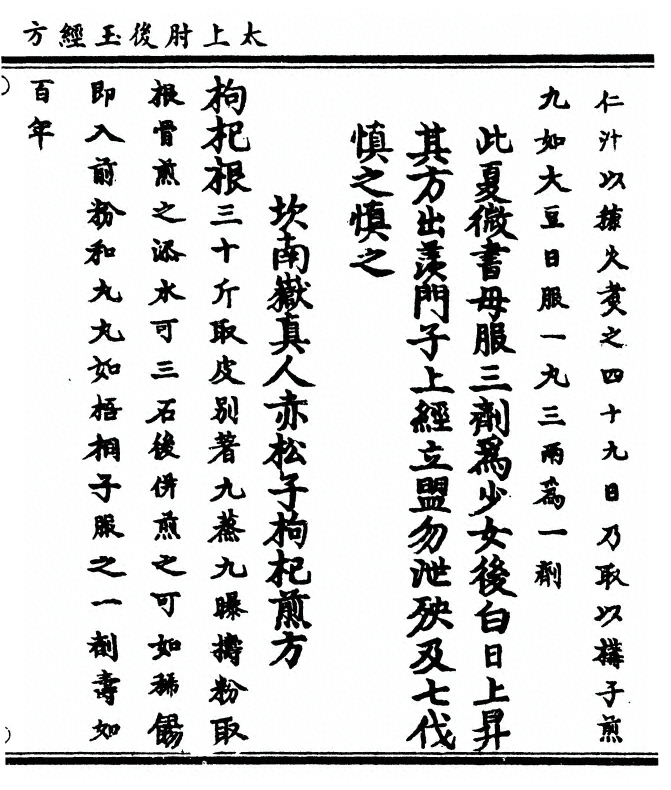 太上肘後玉經方
仁汁以揀火煑之四十九日乃取以構子煎
九如大豆日服一丸三兩為一劑
此夏微書母服三劑爲少女後白日上昇
其方出羨門子上經立盟勿泄殃及七代
慎之慎之
坎南嶽真人赤松子枸杞煎方
枸杞根三十斤取皮別著九蒸九曝擣粉取
根骨煎之添水可三石後併煎之可如稀餳
即入前粉和丸丸如梧桐子服之一劑壽如
百年